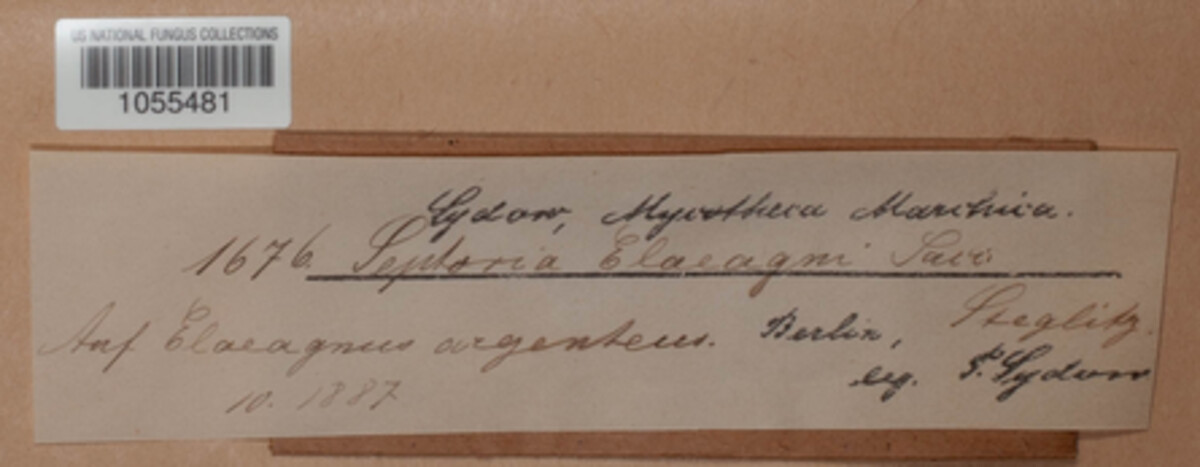 US NATIONAL FUNGUS COLLECTIONS
1055481
Sydow, Mycotheca Marchica.
1676. Septoria Elaeagni Sacc
Auf Elaeagnus argenteus. Berlin, Steglitz.
10. 1887
leg. P. Sydow